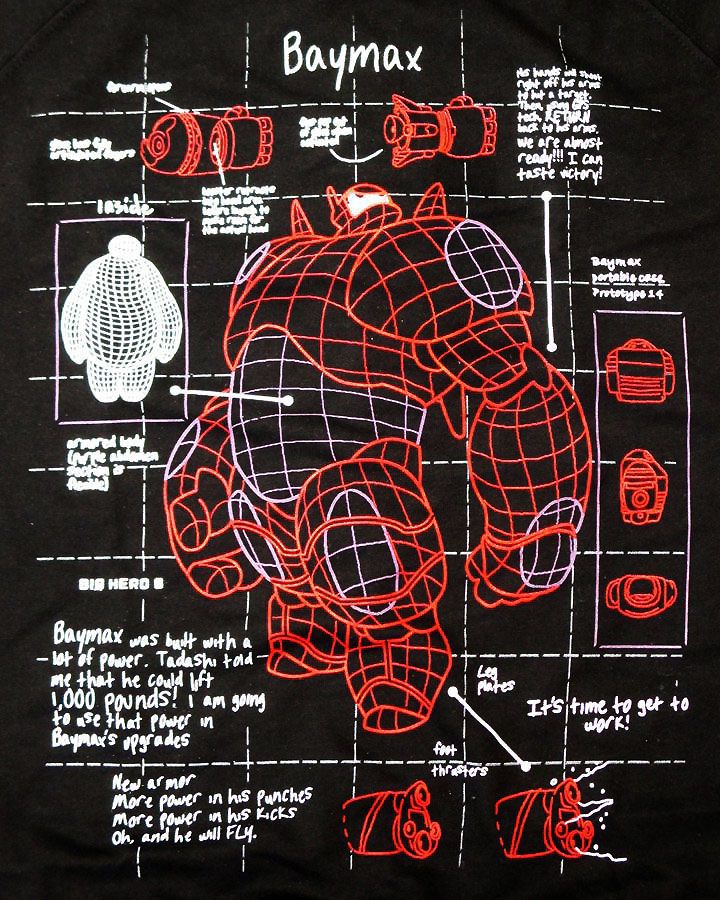 Baymax
His hands will shoot
right off his arms
to hit a target.
Then using GPS
tech, RETURN
back to his arms.
We are almost
ready!!! I can
taste victory!
Inside
Baymax
portable case
Prototype 14
armored body
(Purple abdomen
section is
flexible)
BIG HERO 6
Baymax was built with a
lot of power. Tadashi told
me that he could lift
1,000 pounds! I am going
to use that power in
Baymax's upgrades
Leg
plates
It's time to get to
work!
foot
thrusters
New armor
More power in his punches
More power in his kicks
Oh, and he will FLY.